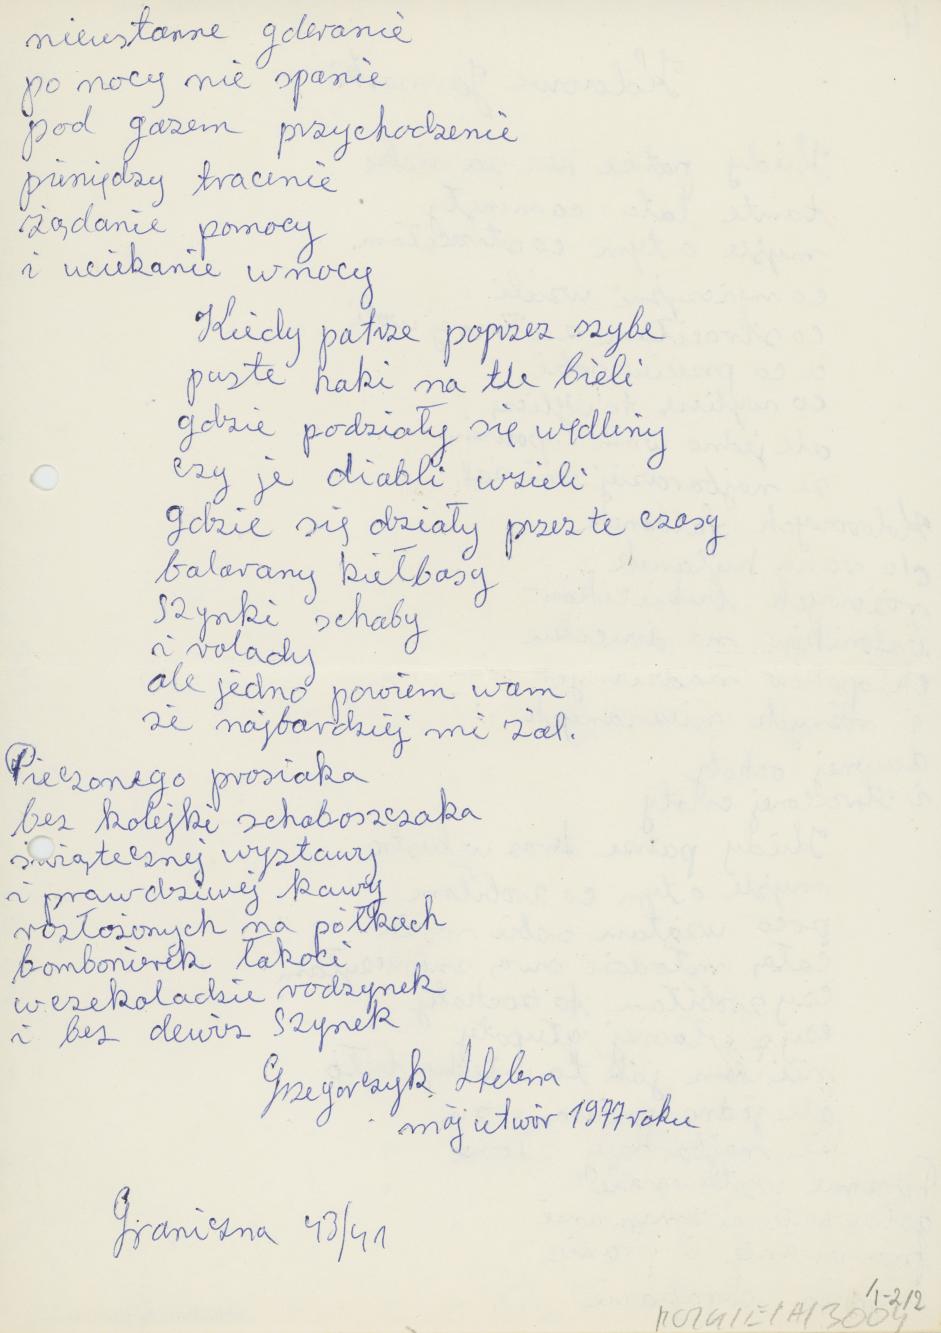 nieustanne gderanie
po nocy nie spanie
pod gazem przychodzenie
pieniędzy tracenie
żądanie pomocy
i uciekanie w nocy
Kiedy patrze poprzez szybe
puste haki na tle bieli
gdzie podziały się wędliny
czy je diabli wzieli
gdzie się działy przez te czasy
balarany kiełbasy
szynki schaby
i rolady
ale jedno powiem wam
że najbardziej mi żal.
Pieczonego prosiaka
bez kolejki schaboszczaka
świątecznej wystawy
i prawdziwej kawy
rozłożonych na półkach
bombonierek łakoci
w czekoladzie rodzynek
i bez dewiz szynek
Grzegorczyk Helena
mój utwór 1977 roku
Graniczna 43/41
1-2/2